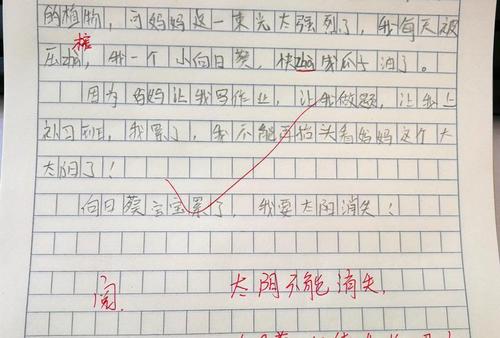 的植物，可妈妈这一束光太强烈了，我每天被
榨
压zhà，我一个小向日葵，快zhà成瓜子油了。
因为妈妈让我写作业，让我做题，让我上
补习班，我累了，我不能再抬头看妈妈这个大
太阳了！
向日葵宝宝累了，我要太阳消失！
阅
太阳不能消失，